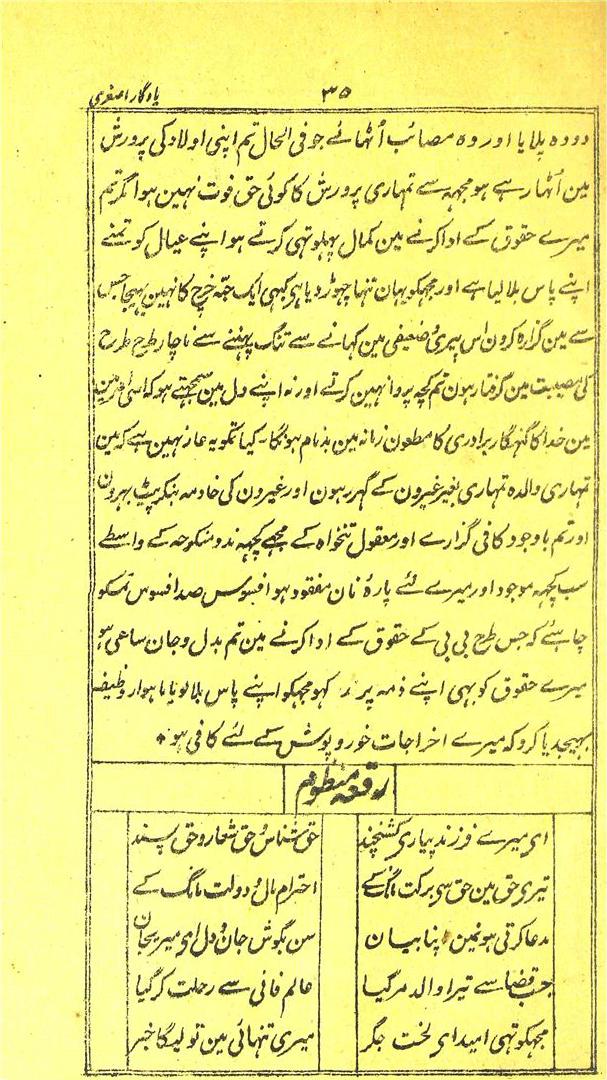 یادگار اصغری
۳۵
دودہ پلایا اور وہ مصائب اُٹھائے جو فی الحال تم اپنی اولاد کی پرورش
مین اُٹھا رہے ہو مجہہ سے تمہاری پرورش کا کوئی حق فوت نہین ہوا مگر تم
میرے حقوق کے ادا کرنے مین کمال پہلو تہی کرتے ہو اپنے عیال کو تمنے
اپنے پاس بلا لیا ہے اور مجہکو یہان تنہا چہوڑ دیا ہی کبہی ایک حبّہ خرچ کا نہین بہیجا جس
سے مین گزارہ کرون اس پیری و ضعیفی مین کہانے سے تنگ پہننے سے ناچار طرح طرح
کی مصیبت مین گرفتار ہون تم کچہہ پروا نہین کرتے اور نہ اپنے دل مین سمجہتے ہو کہ اس
مین خدا کا گنہگار برادری کا مطعون زمانہ مین بدنام ہونگا۔ کیا تمکو یہ عار نہین ہے کہ مین
تمہاری والدہ تمہاری بغیر غیرون کے گہر رہون اور غیرون کی خادمہ بنکر پیٹ بہرون
اور تم باوجود کافی گزارے اور معقول تنخواہ کے مجہے کچہہ ندو منکوحہ کے واسطے
سب کچہہ موجود اور میرے لئے پارۂ نان مفقود ہو افسوس صد افسوس تمکو
چاہئے کہ جس طرح بی بی کے حقوق کے ادا کرنے مین تم بدل و جان ساعی ہو
میرے حقوق کو بہی اپنے ذمہ پر رکہو مجہکو اپنے پاس بلا لو یا ماہوار وظیفہ
بہیجدیا کرو کہ میرے اخراجات خور و پوش کے لئے کافی ہو ٭
رقعہ منظوم
ای میرے فرزند پیاری کشنچند حق شناس و حق شعار و حق پسند
تیری حق مین حق سی برکت مانگ کے احترام مال و دولت مانگ کے
مدعا کرتی ہونمین اپنا بیان سن بگوش جان و دل ای میریجان
جب قضا سے تیرا والد مر گیا عالم فانی سے رحلت کر گیا
مجہکو تہی امید ای لخت جگر میری تنہائی مین تو لیگا خبر